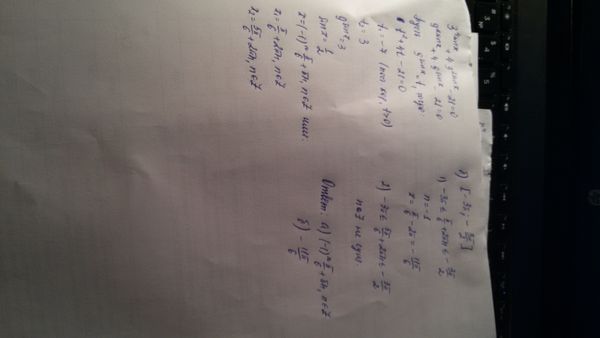 3^2sinx + 4·9^sinx - 21=0
9^sinx + 4·9^sinx - 21=0
9^sinx = t, тогда:
t² + 4t - 21=0
t₁ = -7 (пост. кор. t>0)
t₂ = 3
9^sinx = 3
sin x = 1/2
x = (-1)ⁿ π/6 + πn, n∈Z или:
x₁ = π/6 + 2πn, n∈Z
x₂ = 5π/6 + 2πn, n∈Z
[-3π; -3π/2]
1) -3π ≤ π/6 + 2πn ≤ -3π/2
n = -1
x = π/6 - 2π = -11π/6
2) -3π ≤ 5π/6 + 2πn ≤ -3π/2
n∈Z не сущ.
Ответ: а) (-1)ⁿ π/6 + πn, n∈Z
б) -11π/6